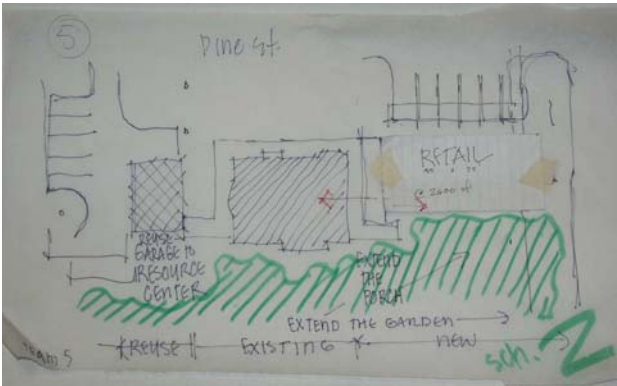 5
Pine St.
RETAIL
@ 2600 sf
REUSE
GARAGE TO
RESOURCE
CENTER
EXTEND
THE
PORCH
EXTEND THE GARDEN
REUSE
EXISTING
NEW
sch. 2
Team 5